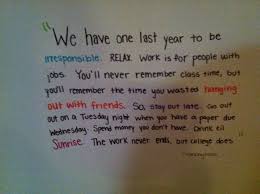 "We have one last year to be
irresponsible. RELAX. Work is for people with
jobs. You'll never remember class time, but
you'll remember the time you wasted hanging
out with friends. So, stay out late. Go out
out on a Tuesday night when you have a paper due
Wednesday. Spend money you don't have. Drink til
Sunrise. The work never ends, but college does"